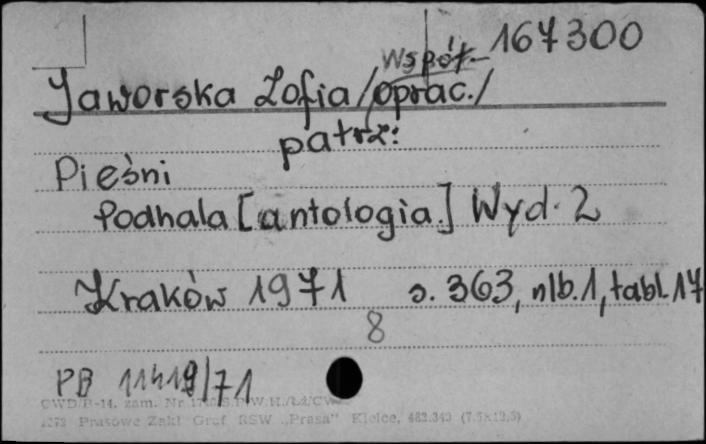 167300
Współ-
Jaworska Zofia /oprac./
patrz:
Pieśni
Podhala [antologia.] Wyd. 2
Kraków 1971 s. 363, nlb.1, tabl.17
8
PB 11419/71
CWD/P-14, zam. Nr
1272 Prasowe Zakł Graf RSW „Prasa” Kielce, 482.340 (7.5x12,5)